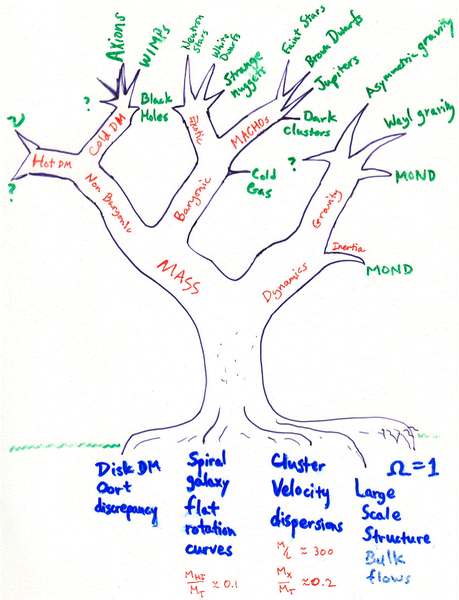 Axions
WIMPs
Neutron
Stars
White
Dwarfs
Strange
nuggets
Faint Stars
Brown Dwarfs
Jupiters
Asymmetric gravity
Weyl gravity
?
Black
Holes
Cold DM
Exotic
MACHOs
Dark
Clusters
ν
Hot DM
?
Non Baryonic
Baryonic
Cold
Gas
?
Gravity
MOND
Inertia
MOND
MASS
Dynamics
Disk DM
Oort
discrepancy
Spiral
galaxy
flat
rotation
curves
M_HI/M_T ≈ 0.1
Cluster
Velocity
dispersions
M/L ≈ 300
M_X/M_T ≈ 0.2
Ω = 1
Large
Scale
Structure
Bulk
flows